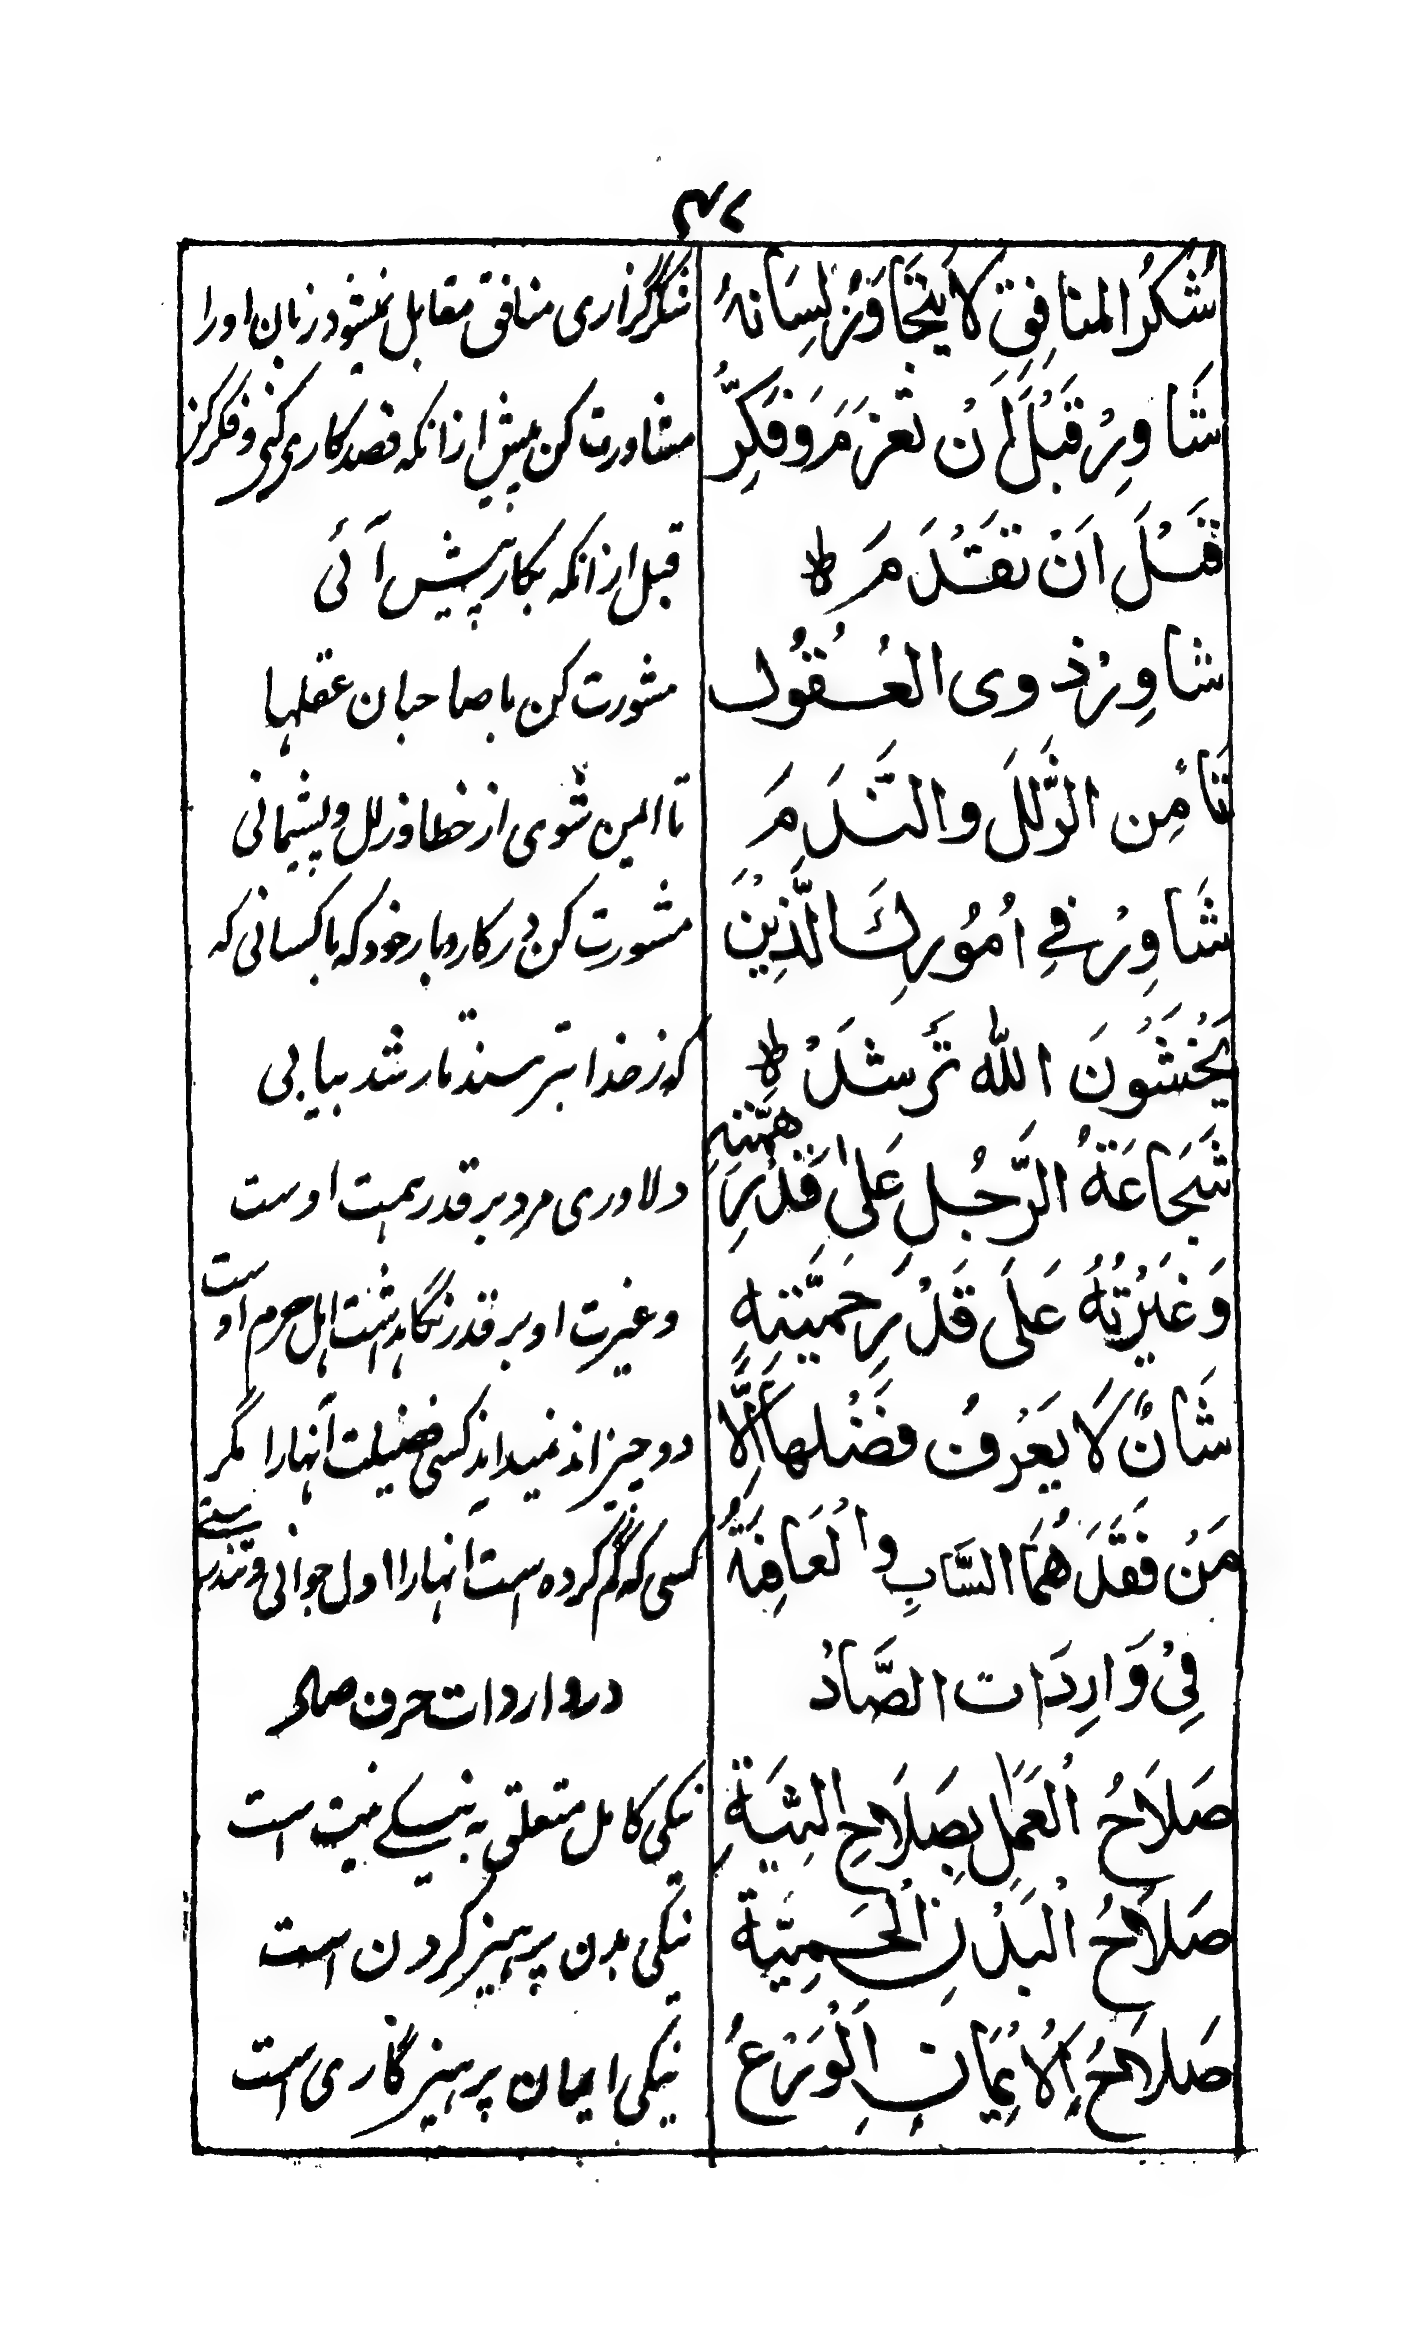 ۴۷
شُكرُ المنافِقِ لا يتجَاوَزُ لِسَانهُ
شكرگزاری منافق مقابل نمیشود زبان اورا
شَاوِرْ قَبْلَ اَنْ تعزَمَ وَفَكِّرْ
مشاورت کن پیش ازانکه قصد کاری کنی و فکر کن
قَبْلَ اَنْ تقَدَمَ ط
قبل ازانکه بکار پیش آئی
شاوِرْ ذوی العُقُول
مشورت کن با صاحبان عقلها
تَاْمِن الزَّلَلَ والنَّدَمَ
تا امین شوی از خطا و زلل و پشیمانی
شَاوِرْ فِي اُمُورِكَ الَّذِيْنَ
مشورت کن در کاروبار خود که با کسانی که
يَخْشَوُنَ الله تَرشَدْ ط
که از خدا بترسند تا رشد بیابی
شَجَاعَةُ الرَّجُلِ عَلىٰ قَدْرِ هِمَّتِهِ
دلاوری مرد بر قدر همت اوست
وَغَيْرتُهُ عَلَى قَدْرِ حَمِيَّتِهِ
وغیرت او بر قدر نگاهداشت اهل حرم اوست
شَانٌ لَا يَعْرِفُ فضْلهَا اِلَّا
دو چیز اند نمیداند کسی فضیلت آنهارا مگر
مَنْ فَقَدَ هُمَا الشَّابِ والْعَافِيَةُ
کسی که گم کرده است آنهارا اول جوانی وتندرستی
فِیْ وَارِدَات الصَّادْ
در واردات حرف صاد
صَلَاحُ الْعَمَلِ بِصَلَاحِ النِّيَّةِ
نیکی کامل متعلق به نیکے نیت است
صَلَاحُ الْبَدْنِ الْحَمِيَّة
نیکی بدن پرهیز کردن است
صَلاحُ الْاِيْمَانِ اَلْوَرْعُ
نیکی ایمان پرهیزگاری است